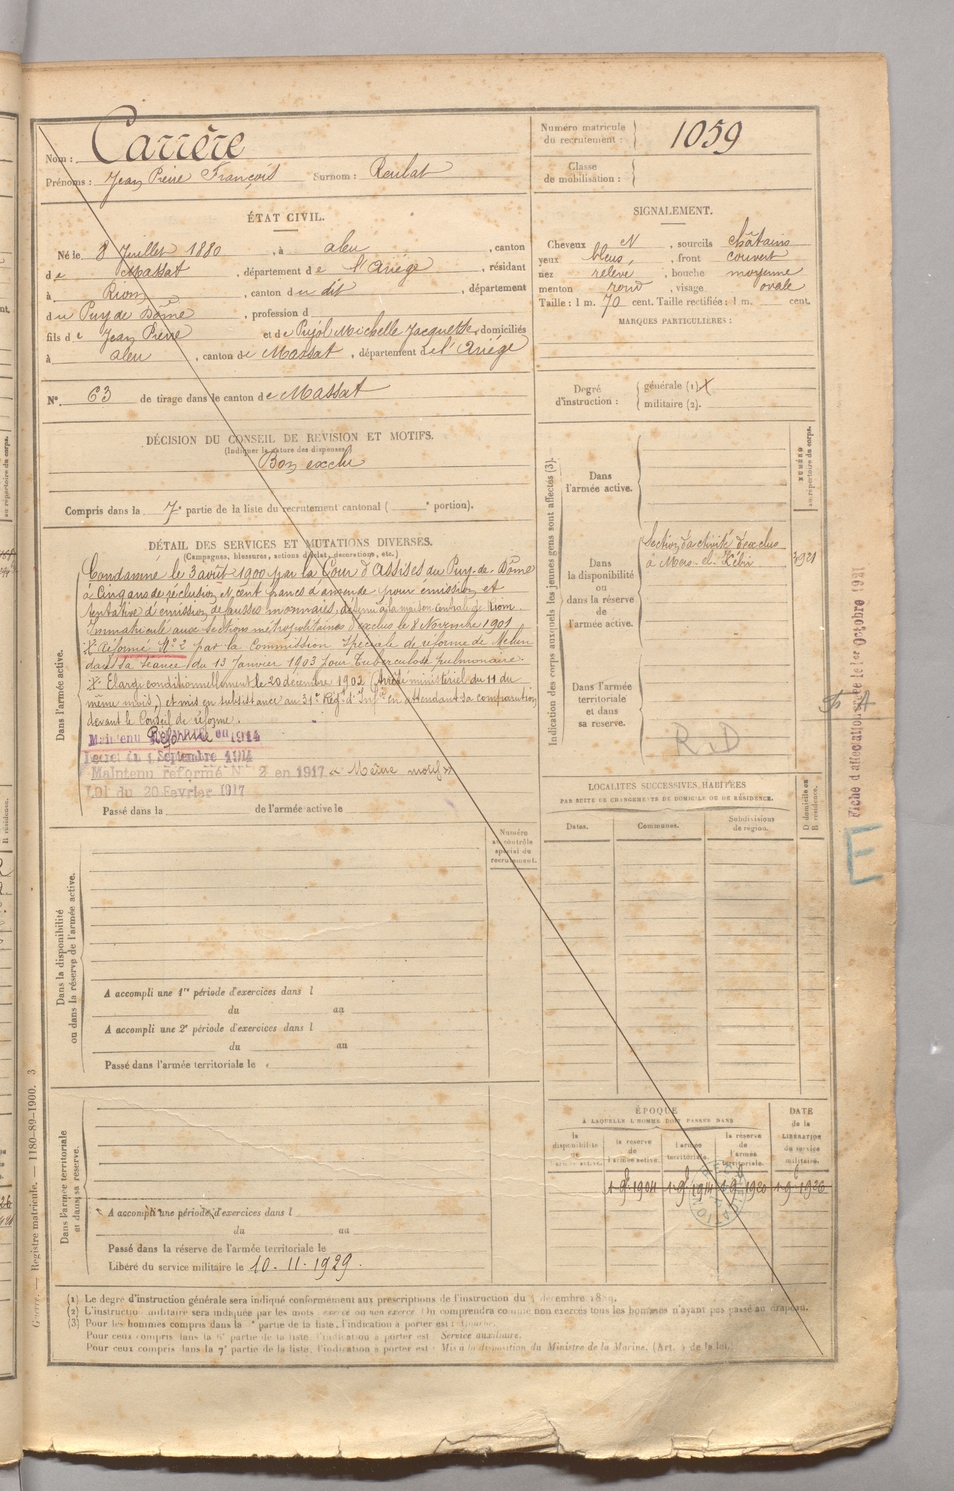 Nom : Carrère
Prénoms : Jean Pierre François Surnom : Reulat
Numéro matricule du recrutement : 1059
Classe de mobilisation :
ÉTAT CIVIL.
Né le 8 Juillet 1880, à aleu, canton
de Massat, département de l'Ariège, résidant
à Riom, canton du dit, département
du Puy de Dôme, profession d
fils de Jean Pierre et de Pujol Michelle Jacquette, domiciliés
à aleu, canton de Massat, département de l'Ariège
N° 63 de tirage dans le canton de Massat
SIGNALEMENT.
Cheveux N, sourcils châtains
yeux bleus, front couvert
nez relevé, bouche moyenne
menton rond, visage ovale
Taille : 1 m. 70 cent. Taille rectifiée : 1 m. cent.
MARQUES PARTICULIÈRES :
Degré d'instruction : générale (1) X
militaire (2).
DÉCISION DU CONSEIL DE REVISION ET MOTIFS.
(Indiquer la nature des dispenses)
Bon exclu
Compris dans la 7e partie de la liste du recrutement cantonal ( e portion).
DÉTAIL DES SERVICES ET MUTATIONS DIVERSES.
(Campagnes, blessures, actions d'éclat, décorations, etc.)
Dans l'armée active.
Condamné le 3 août 1900 par la Cour d'Assises du Puy-de-Dôme
à Cinq ans de réclusion et cent francs d'amende pour émission et
tentative d'émission de fausses monnaies, détenu à la maison Centrale de Riom.
Immatriculé aux Sections métropolitaines d'exclus le 8 Novembre 1901
Réformé N° 2 par la Commission Spéciale de réforme de Melun
dans sa séance du 13 Janvier 1903 pour Tuberculose pulmonaire.
Elargi conditionnellement le 20 décembre 1902 (Arrêté ministériel du 11 du
même mois) et mis en subsistance au 31e Régt d'Infie en attendant sa comparution
devant le Conseil de réforme.
Maintenu Réformé en 1914
Décret du Septembre 1914
Maintenu réformé N° 2 en 1917 Même motif
Loi du 20 Fevrier 1917
Passé dans la de l'armée active le
Indication des corps auxquels les jeunes gens sont affectés (3).
NUMÉRO au répertoire du corps.
Dans l'armée active.
Dans la disponibilité ou dans la réserve de l'armée active.
Section d'activité d'exclus
à Mers-el-Kébir
3921
Dans l'armée territoriale et dans sa réserve.
R D
Fiche d'affectation
Octobre 1921
E
LOCALITÉS SUCCESSIVES HABITÉES
PAR SUITE DE CHANGEMENTS DE DOMICILE OU DE RÉSIDENCE.
Dates. Communes. Subdivisions de région. D domicile ou R résidence.
Numéro au contrôle spécial du recrutement.
Dans la disponibilité
ou dans la réserve de l'armée active.
A accompli une 1re période d'exercices dans l
du au
A accompli une 2e période d'exercices dans l
du au
Passé dans l'armée territoriale le
Dans l'armée territoriale
et dans sa réserve.
A accompli une période d'exercices dans l
du au
Passé dans la réserve de l'armée territoriale le
Libéré du service militaire le 10-11-1929.
ÉPOQUE
À LAQUELLE L'HOMME DOIT PASSER DANS
la disponibilité de l'armée active.
la réserve de l'armée active.
l'armée territoriale.
la réserve de l'armée territoriale.
DATE de la LIBÉRATION du service militaire.
1-9-1904 1-9-1914 1-9-1920 1-9-1926
Guerre. — Registre matricule. — 1180-89-1900. 3
(1) Le degré d'instruction générale sera indiqué conformément aux prescriptions de l'instruction du décembre
(2) L'instruction militaire sera indiquée par les mots : exercé ou non exercé. On comprendra comme non exercés tous les hommes n'ayant pas passé au drapeau.
(3) Pour les hommes compris dans la partie de la liste, l'indication à porter est
Pour ceux compris dans la 6e partie de la liste, l'indication à porter est : Service auxiliaire.
Pour ceux compris dans la 7e partie de la liste, l'indication à porter est : Mis à la disposition du Ministre de la Marine. (Art. de la loi.